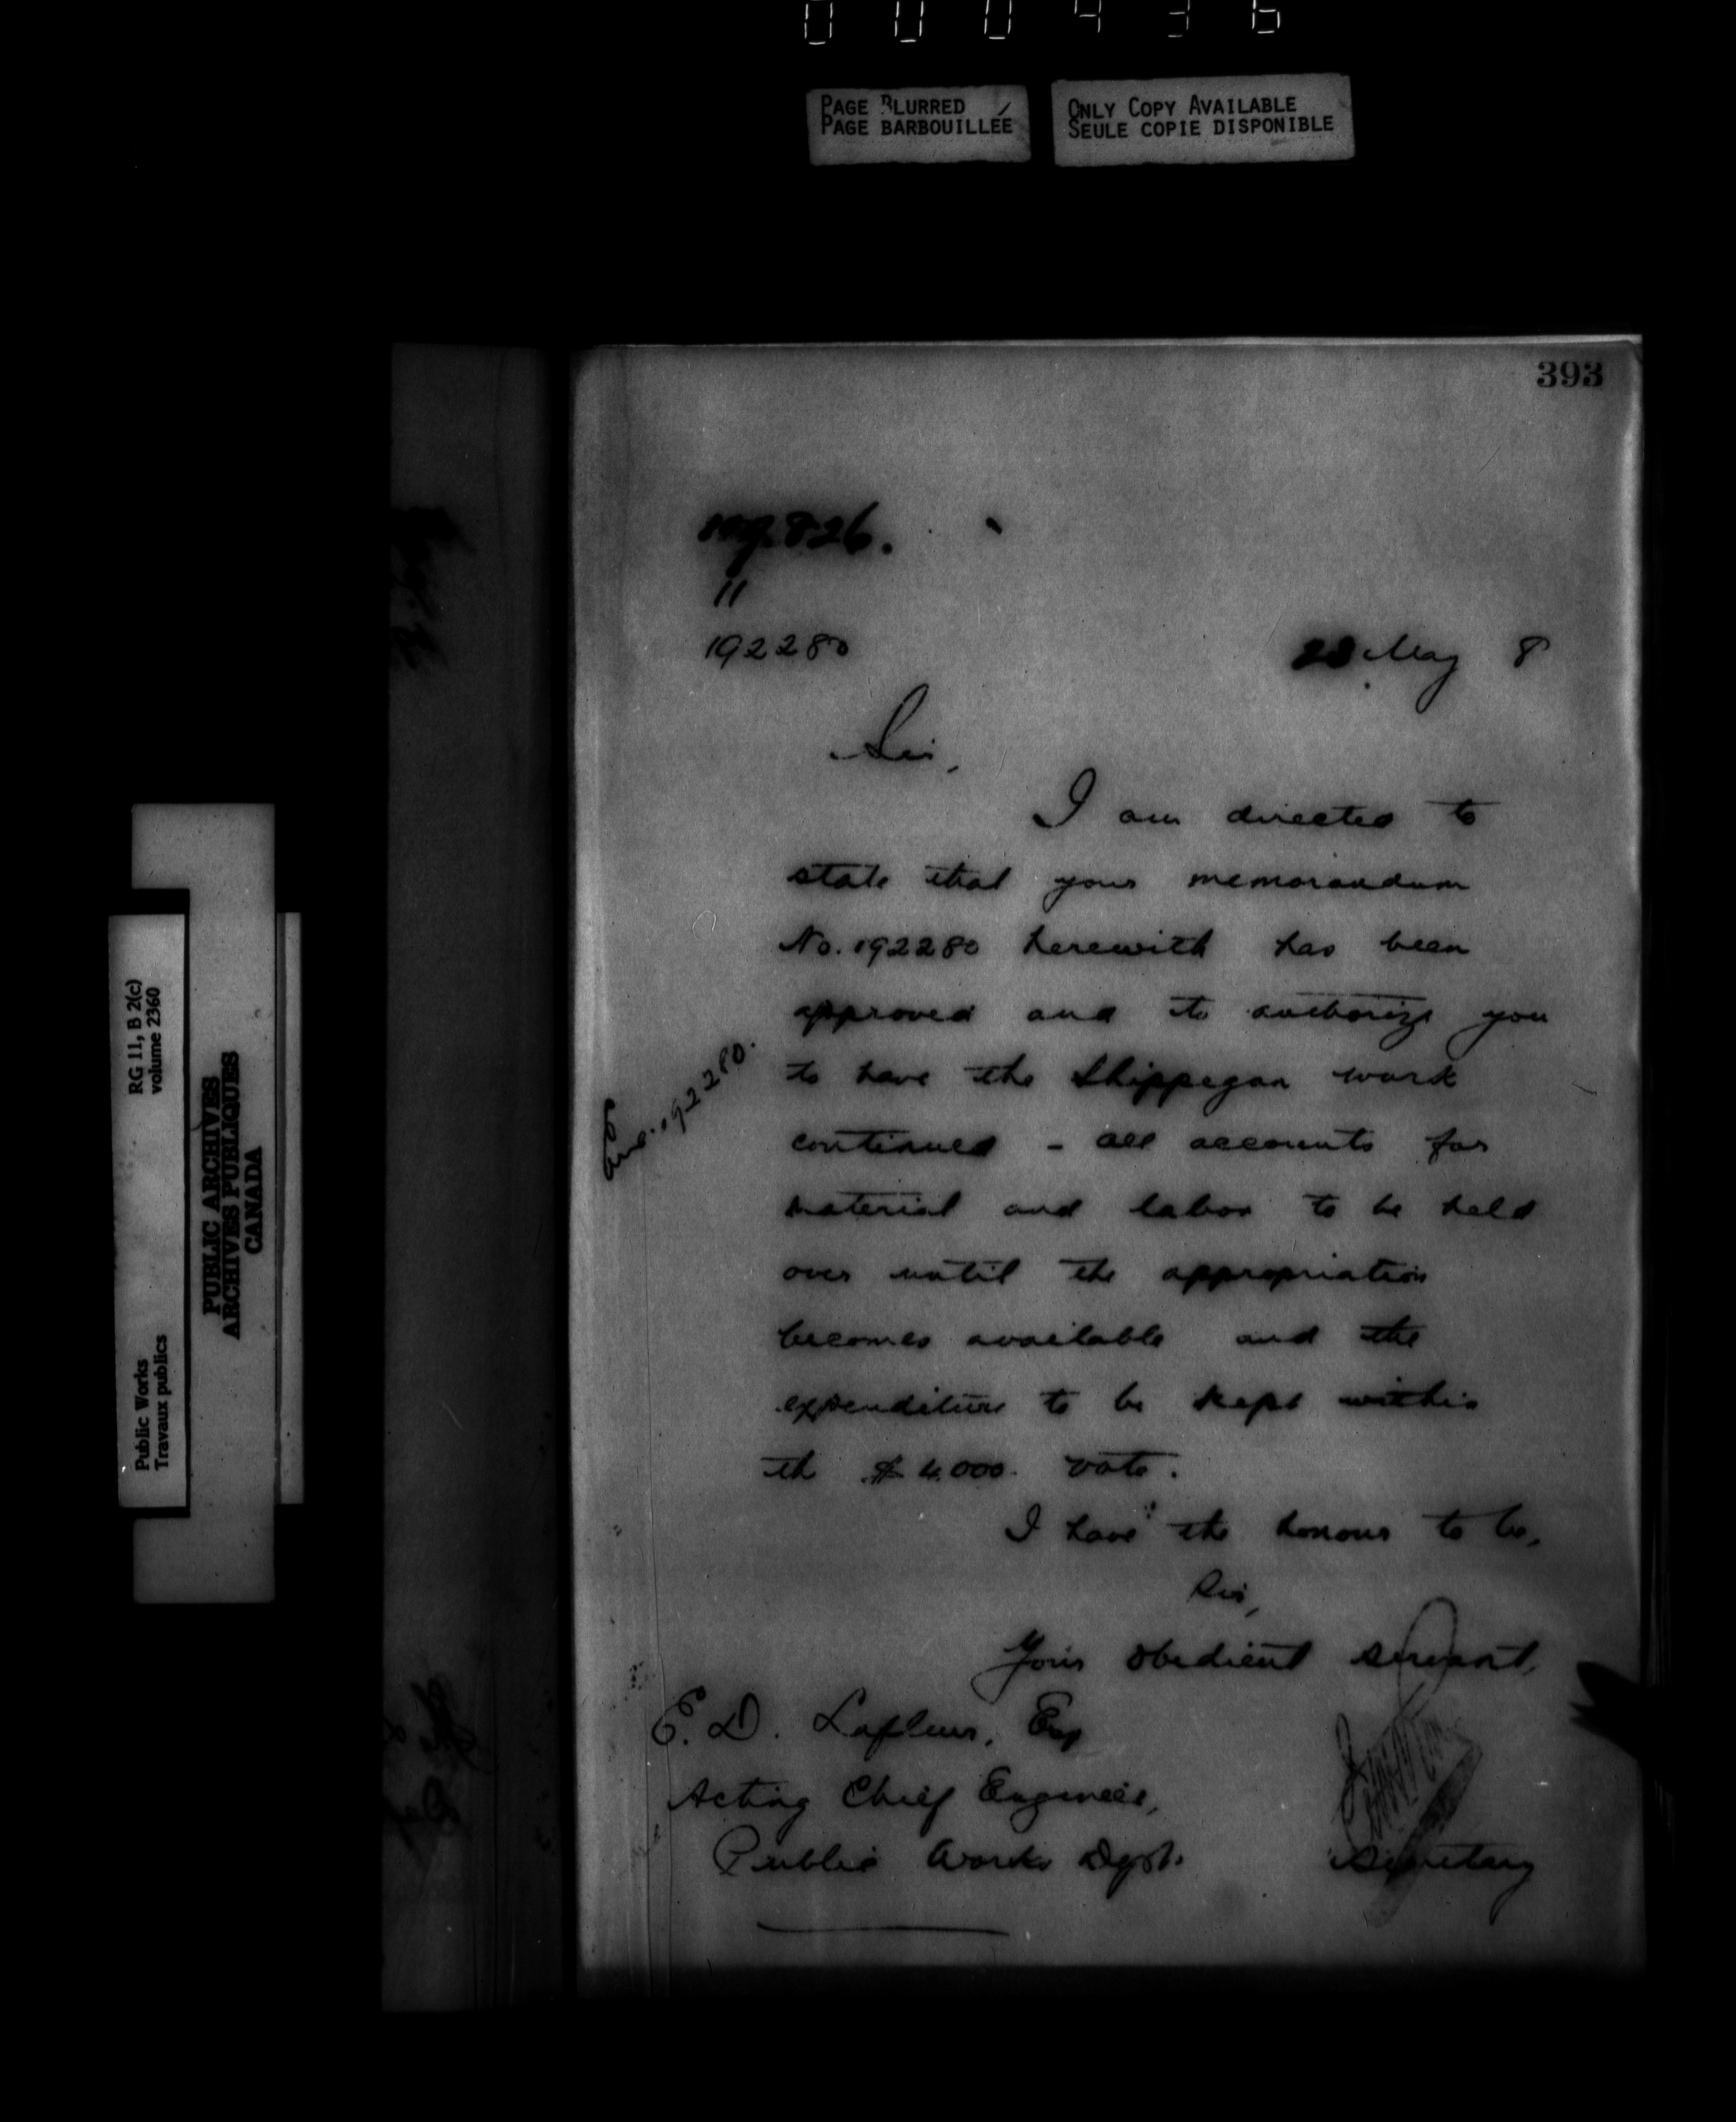 000436
PAGE BLURRED
PAGE BARBOUILLÉE
ONLY COPY AVAILABLE
SEULE COPIE DISPONIBLE
393
826.
11
192280
23 May 8
Sir,
I am directed to
state that your memorandum
No. 192280 herewith has been
approved and to authorize you
to have the Shippegan work
continued - all accounts for
material and labor to be held
over until the appropriation
becomes available and the
expenditure to be kept within
th $4,000. vote.
Enc. 192280.
I have the honour to be,
Sir,
Your obedient servant,
E. D. Lafleur, Esq
Acting Chief Engineer,
Public Works Dept.
Secretary
RG 11, B 2(c)
volume 2360
Public Works
Travaux publics
PUBLIC ARCHIVES
ARCHIVES PUBLIQUES
CANADA